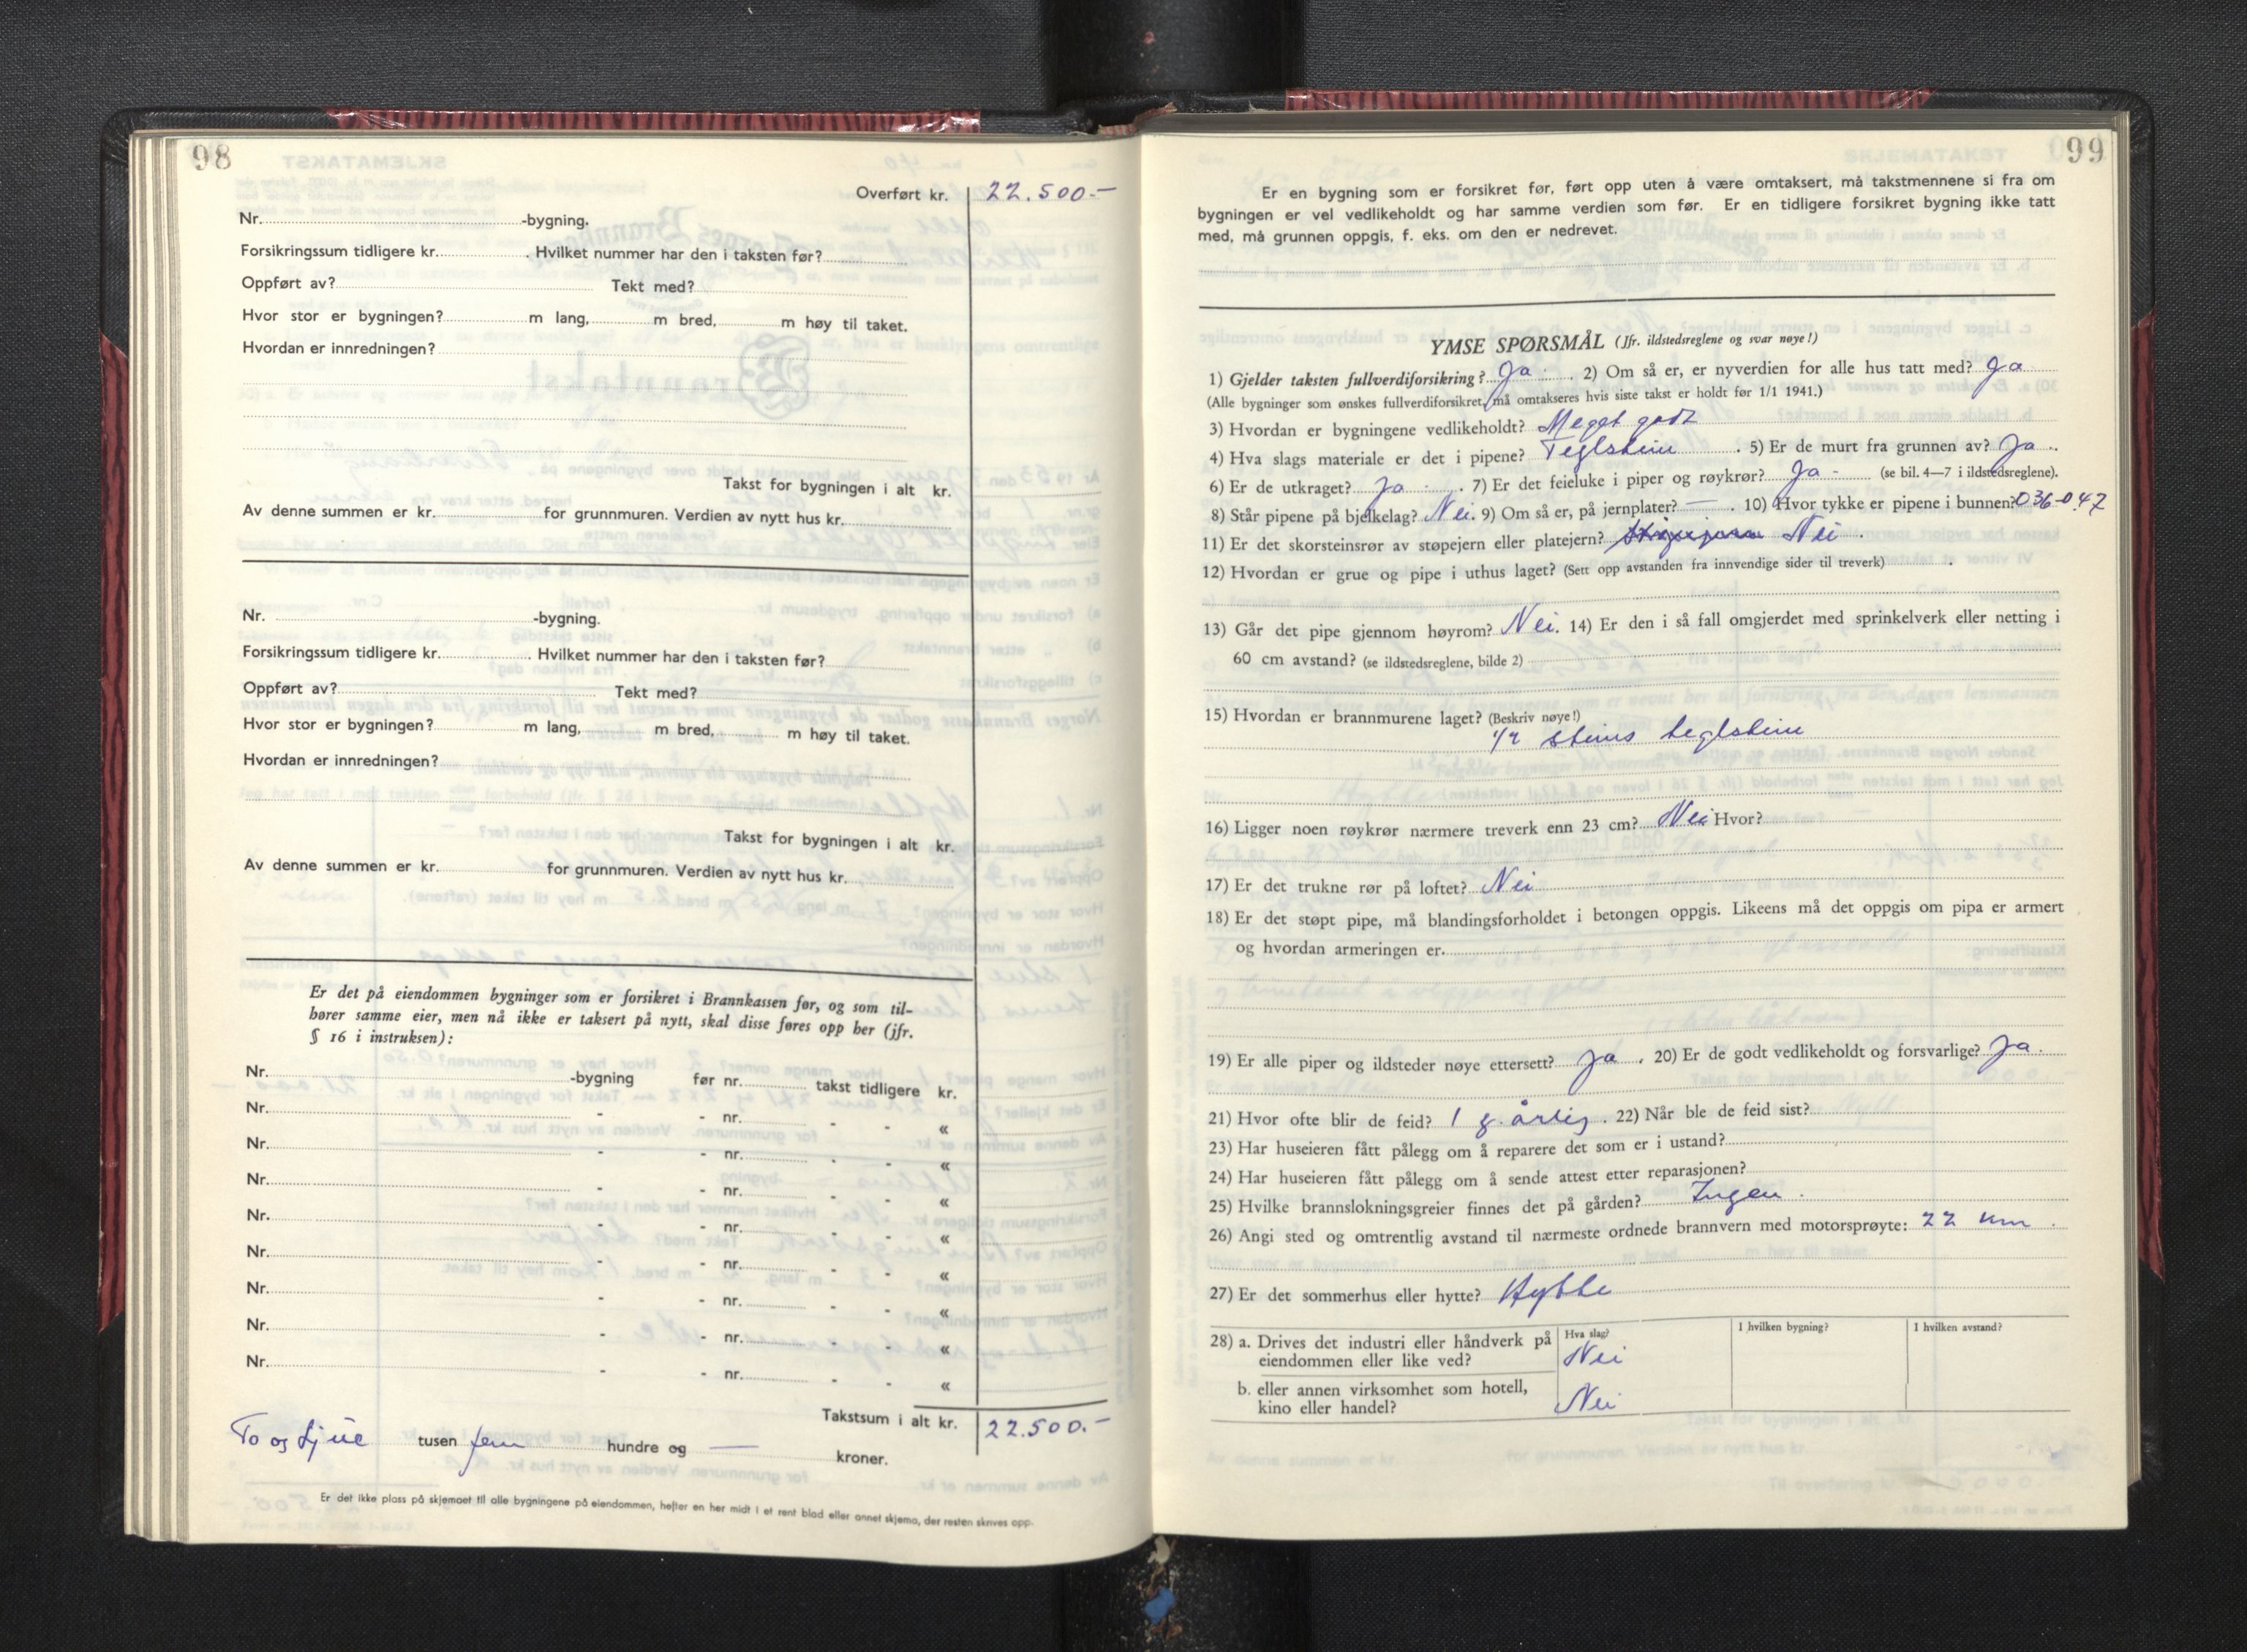 98
Overført kr. 22.500.-
Nr. -bygning.
Forsikringssum tidligere kr. . Hvilket nummer har den i taksten før?
Oppført av? Tekt med?
Hvor stor er bygningen? m lang, m bred, m høy til taket.
Hvordan er innredningen?
Takst for bygningen i alt kr.
Av denne summen er kr. for grunnmuren. Verdien av nytt hus kr.
Nr. -bygning.
Forsikringssum tidligere kr. . Hvilket nummer har den i taksten før?
Oppført av? Tekt med?
Hvor stor er bygningen? m lang, m bred, m høy til taket.
Hvordan er innredningen?
Takst for bygningen i alt kr.
Av denne summen er kr. for grunnmuren. Verdien av nytt hus kr.
Er det på eiendommen bygninger som er forsikret i Brannkassen før, og som til-
hører samme eier, men nå ikke er taksert på nytt, skal disse føres opp her (jfr.
§ 16 i instruksen):
Nr. -bygning før nr. takst tidligere kr.
Nr. - - nr. - - «
Nr. - - nr. - - «
Nr. - - nr. - - «
Nr. - - nr. - - «
Nr. - - nr. - - «
Nr. - - nr. - - «
Nr. - - nr. - - «
Nr. - - nr. - - «
Takstsum i alt kr. 22.500.-
To og tjue tusen fem hundre og — kroner.
Er det ikke plass på skjemaet til alle bygningene på eiendommen, hefter en her midt i et rent blad eller annet skjema, der resten skrives opp.
99
Er en bygning som er forsikret før, ført opp uten å være omtaksert, må takstmennene si fra om
bygningen er vel vedlikeholdt og har samme verdien som før. Er en tidligere forsikret bygning ikke tatt
med, må grunnen oppgis, f. eks. om den er nedrevet.
YMSE SPØRSMÅL (Jfr. ildstedsreglene og svar nøye!)
1) Gjelder taksten fullverdiforsikring? Ja . 2) Om så er, er nyverdien for alle hus tatt med? Ja
(Alle bygninger som ønskes fullverdiforsikret, må omtakseres hvis siste takst er holdt før 1/1 1941.)
3) Hvordan er bygningene vedlikeholdt? Meget godt
4) Hva slags materiale er det i pipene? Teglstein . 5) Er de murt fra grunnen av? Ja .
6) Er de utkraget? Ja . 7) Er det feieluke i piper og røykrør? Ja - (se bil. 4—7 i ildstedsreglene).
8) Står pipene på bjelkelag? Nei. 9) Om så er, på jernplater? — . 10) Hvor tykke er pipene i bunnen? 0 36-0.47
11) Er det skorsteinsrør av støpejern eller platejern? Nei .
12) Hvordan er grue og pipe i uthus laget? (Sett opp avstanden fra innvendige sider til treverk) .
13) Går det pipe gjennom høyrom? Nei. 14) Er den i så fall omgjerdet med sprinkelverk eller netting i
60 cm avstand? (se ildstedsreglene, bilde 2)
15) Hvordan er brannmurene laget? (Beskriv nøye!)
1/2 steins teglstein
16) Ligger noen røykrør nærmere treverk enn 23 cm? Nei Hvor?
17) Er det trukne rør på loftet? Nei
18) Er det støpt pipe, må blandingsforholdet i betongen oppgis. Likeens må det oppgis om pipa er armert
og hvordan armeringen er.
19) Er alle piper og ildsteder nøye ettersett? Ja . 20) Er de godt vedlikeholdt og forsvarlige? Ja.
21) Hvor ofte blir de feid? 1 g. årlig . 22) Når ble de feid sist?
23) Har huseieren fått pålegg om å reparere det som er i ustand?
24) Har huseieren fått pålegg om å sende attest etter reparasjonen?
25) Hvilke brannslokningsgreier finnes det på gården? Ingen .
26) Angi sted og omtrentlig avstand til nærmeste ordnede brannvern med motorsprøyte: 22 km .
27) Er det sommerhus eller hytte? Hytte
28) a. Drives det industri eller håndverk på eiendommen eller like ved? Hva slag? Nei I hvilken bygning? I hvilken avstand?
b. eller annen virksomhet som hotell, kino eller handel? Nei